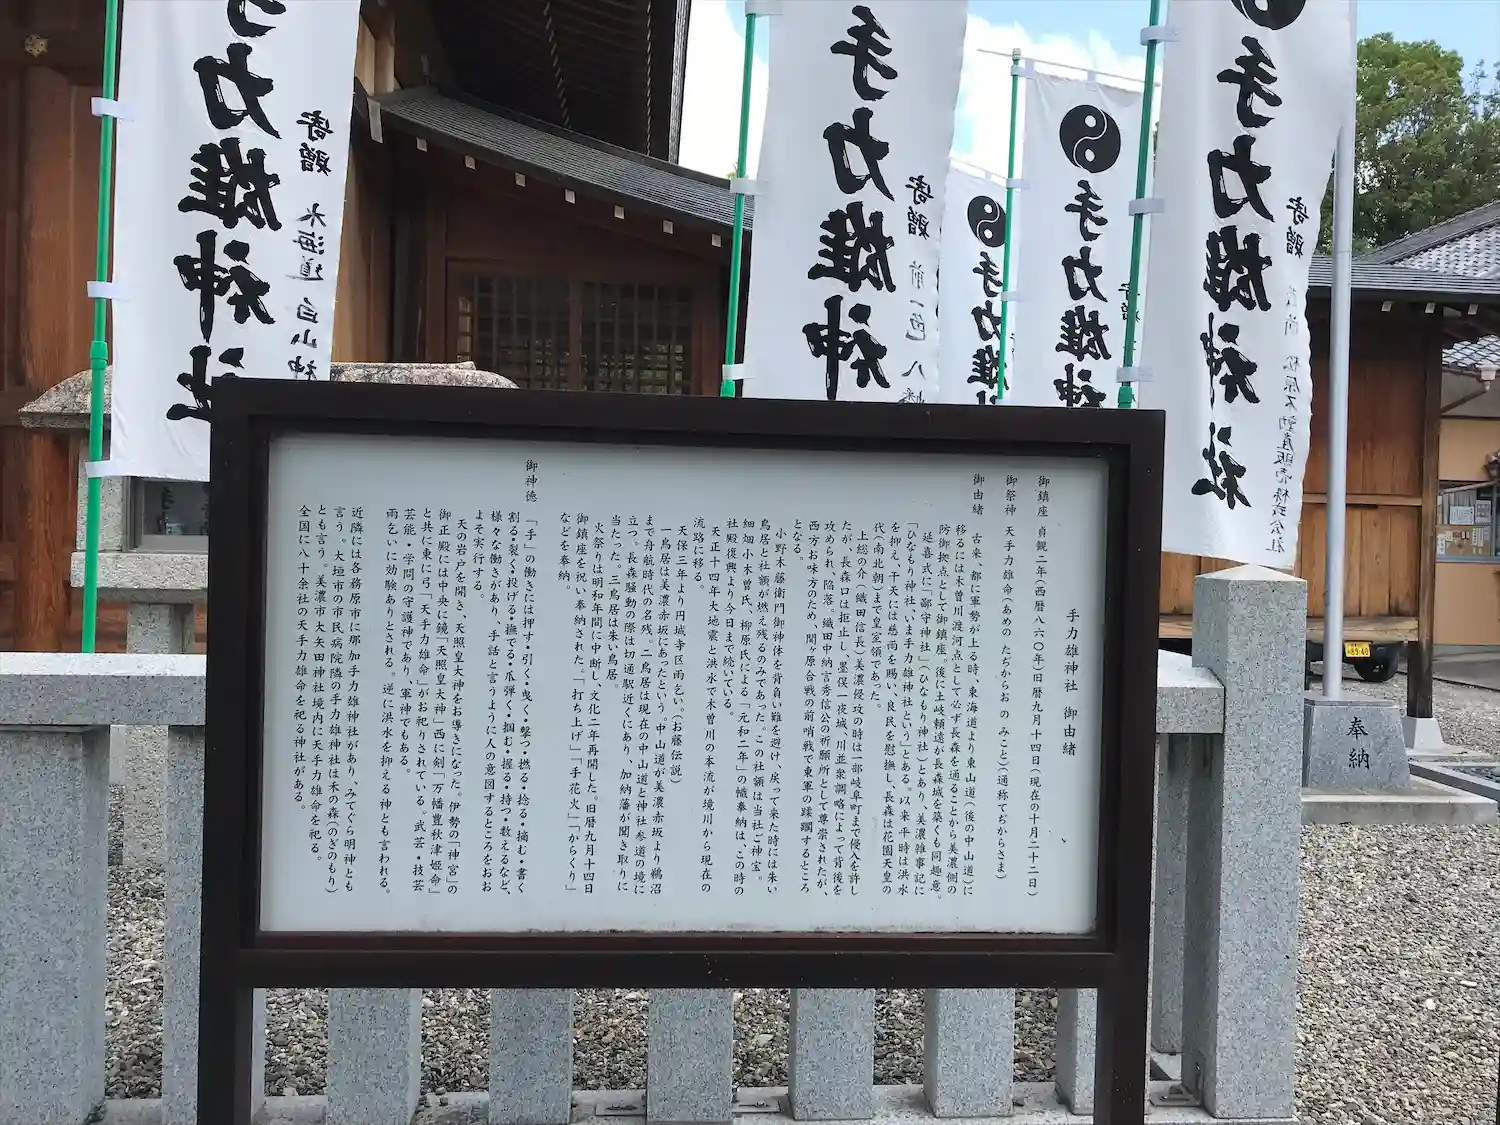 手力雄神社　御由緒
御鎮座　貞観二年(西暦八六〇年)旧暦九月十四日(現在の十月二十二日)
御祭神　天手力雄命(あめの たぢからお の みこと)(通称てぢからさま)
御由緒　古来、都に軍勢が上る時、東海道より東山道(後の中山道)に
移るには木曽川渡河点として必ず長森を通ることから美濃側の
防御拠点として御鎮座。後に土岐頼遠が長森城を築くも同趣意。
延喜式に「鄙守神社」(ひなもり神社)とあり、美濃雑事記に
「ひなもり神社、いま手力雄神社という」とある。以来平時は洪水
を抑え、干天には慈雨を賜い、良民を慰撫し、長森は花園天皇の
代(南北朝)まで皇室領であった。
上総の介(織田信長)美濃侵攻の時は一部岐阜町まで侵入を許し
たが、長森口は拒止し、墨俣一夜城、川並衆調略によって背後を
攻められ、陥落。織田中納言秀信公の祈願所として尊崇されたが、
西方お味方のため、関ヶ原合戦の前哨戦で東軍の蹂躙するところ
となる。
小野木藤衛門御神体を背負い難を避け、戻って来た時には朱い
鳥居と社額が燃え残るのみであった。この社額は当社ご神宝。
細畑小木曽氏、柳原氏による「元和二年」の幟奉納は、この時の
社殿復興より今日まで続いている。
天正十四年大地震と洪水で木曽川の本流が境川から現在の
流路に移る。
天保三年より円城寺区雨乞い。(お藤伝説)
一鳥居は美濃赤坂にあったという。中山道が美濃赤坂より鵜沼
まで舟航時代の名残。二鳥居は現在の中山道と神社参道の境に
立つ。長森騒動の際は切通駅近くにあり、加納藩が聞き取りに
当たった。三鳥居は朱い鳥居。
火祭りは明和年間に中断し、文化二年再開した。旧暦九月十四日
御鎮座を祝い奉納された。「打ち上げ」「手花火」「からくり」
などを奉納。
御神徳　「手」の働きには押す・引く・曳く・撃つ・撚る・捻る・摘む・書く
割る・裂く・投げる・撫でる・爪弾く・掴む・握る・持つ・数えるなど、
様々な働きがあり、手話と言うように人の意図するところをおお
よそ実行する。
天の岩戸を開き、天照皇大神をお導きになった。伊勢の「神宮」の
御正殿には中央に鏡「天照皇大神」西に剣「万幡豊秋津姫命」
と共に東に弓「天手力雄命」がお祀りされている。武芸・技芸
芸能・学問の守護神であり、軍神でもある。
雨乞いに効験ありとされる。逆に洪水を抑える神とも言われる。
近隣には各務原市に那加手力雄神社があり、みてぐら明神とも
言う。大垣市の市民病院隣の手力雄神社は禾の森(のぎのもり)
とも言う。美濃市大矢田神社境内に天手力雄命を祀る。
全国に八十余社の天手力雄命を祀る神社がある。
手力雄神社
寄贈
松原不動産販売株式会社
手力雄神
手力雄
手力雄神
寄贈 前一色 八
力雄神社
寄贈 水海道 白山神
奉納
89-40